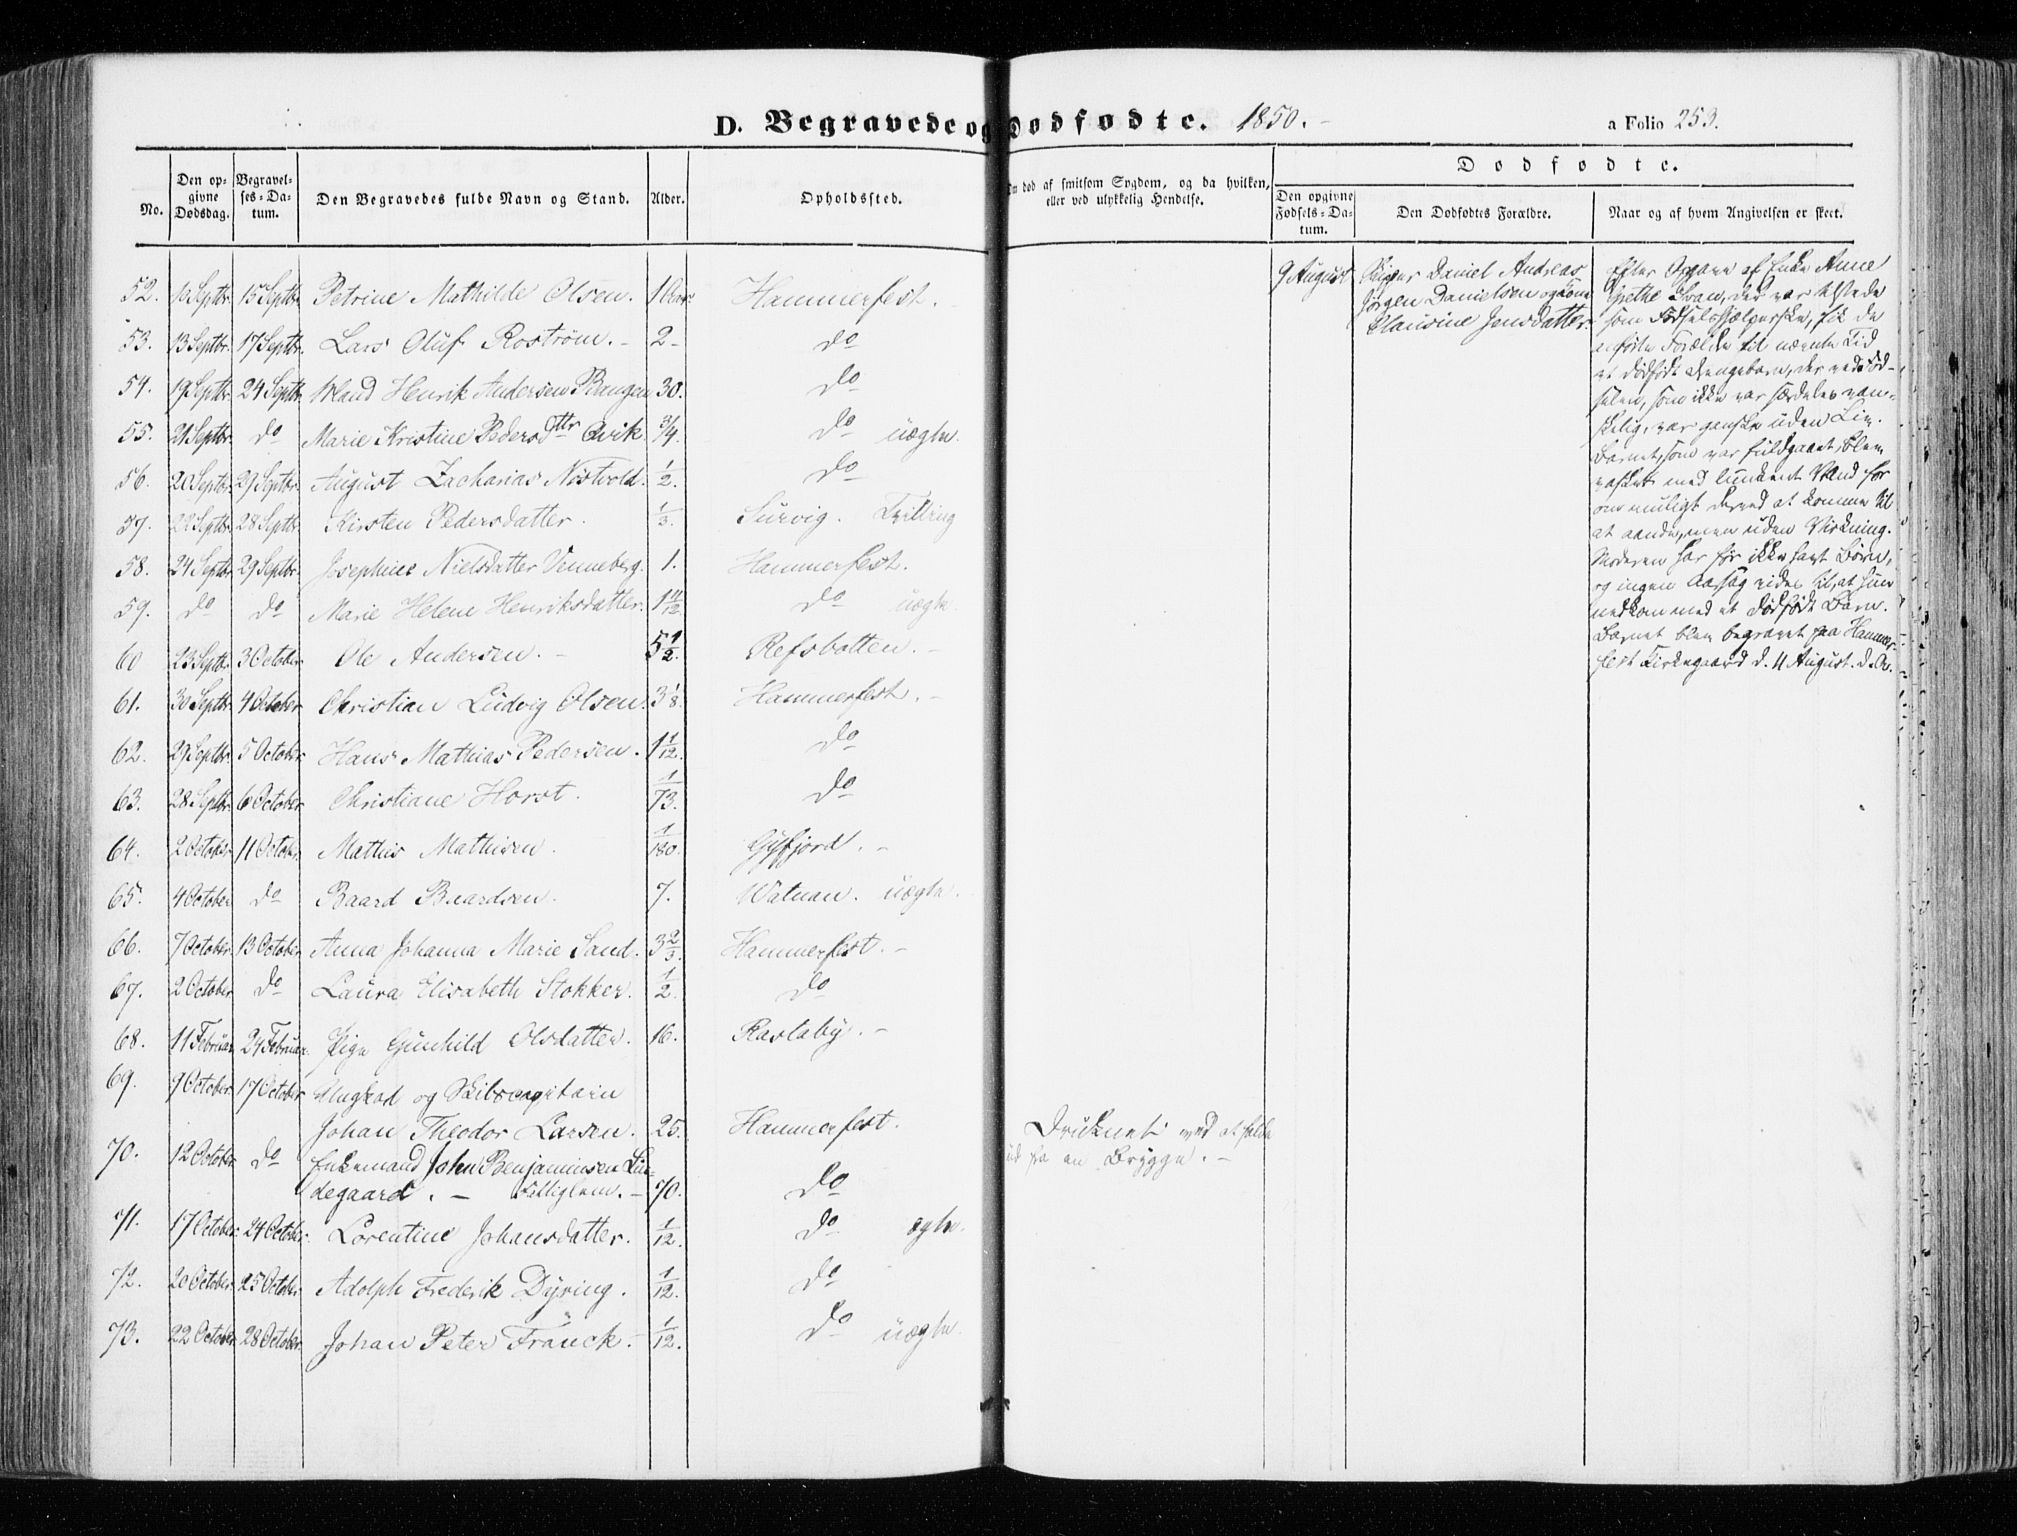 D. Begravede og Dødfødte. 1850.-
a Folio 253.
No.
Den opgivne Dødsdag.
Begravelses-Datum.
Den Begravedes fulde Navn og Stand.
Alder.
Opholdssted.
død af smitsom Sygdom, og da hvilken, eller ved ulykkelig Hendelse.
Dødfødte.
Den opgivne Fødsels-Datum.
Den Dødfødtes Forældre.
Naar og af hvem Angivelsen er skeet.
52. 10 Septbr. 15 Septbr. Petrine Mathilde Olsen. 1 Aar. Hammerfest.
53. 13 Septbr. 17 Septbr. Lars Oluf Roström. - 2 - do
54. 19 Septbr. 24 Septbr. Henrik Andersen 30. do
55. 21 Septbr. do Marie Kristine Pedersdttr Qvik. 3/4 do uægte.
56. 20 Septbr. 29 Septbr. August Zacharias Nöstvold. 1/2. do
57. 22 Septbr. 28 Septbr. Kirsten Pedersdatter. 1/3. Survig. Tvilling
58. 24 Septbr. 29 Septbr. Josephine Nielsdatter Venneberg. 1. Hammerfest.
59. do do Marie Helene Henriksdatter. 1 11/12 do uægte.
60 23 Septbr. 3 October Ole Andersen. - 5 1/2. Refsbotten. -
61. 30 Septbr. 4 October Christian Ludvig Olsen. 3 1/8. Hammerfest. -
62. 29 Septbr. 5 October Hans Mathias Pedersen. 1 1/12. do
63. 28 Septbr. 6 October Christiane Horst. 1/73. do
64. 2 October 11 October Mathis Mathisen. 1/180.
65. 4 October do Baard Baardsen. 7. uægte.
66. 7 October. 13 October Anna Johanna Marie Sand. 3 2/3. Hammerfest. -
67. 2 October do Laura Elisabeth Stokker. 1/2. do
68. 11 Februar 24 Februar. Pige Gunhild Olsdatter. 16. Rastaby. -
69. 9 October. 17 October Ungkarl og Skibscapitain
Johan Theodor Larsen. 25. Hammerfest. Druknet ved at falde
ud fra en Brygge. -
70. 12 October do Enkemand John Benjaminsen Lin-
degaard. - Fattiglem. - 70. do
71. 17 October. 24 October. Lorentine Johansdatter. 1/12. do ægte.
72. 20 October. 25 October Adolph Frederik Dyring. 1/12. do
73. 22 October 28 October. Johan Peter Franck. - 1/12. do uægte.
9 August Daniel Andreas
Jørgen Danielsen og Kone
Clausine Jensdatter.
Efter Opgave af Enke Anne
Grethe Svan, der var tilstede
som Fødselshjælperske, fik de
anførte Forældre til nævnte Tid
et dødfødt Drengebarn, der ved Fød-
selen, som ikke var særdeles van-
skelig, var ganske uden Liv.
Barnet, som var fuldgaaet, blev
vasket med lunkent Vand for
om muligt derved at komme til
at aande, men uden Virkning.
Moderen har før ikke havt Børn,
og ingen Aarsag vides til, at hun
nedkom med et dødfødt Barn.
Barnet blev begravet paa Hammer-
fest Kirkegaard d. 11 August. d. A.